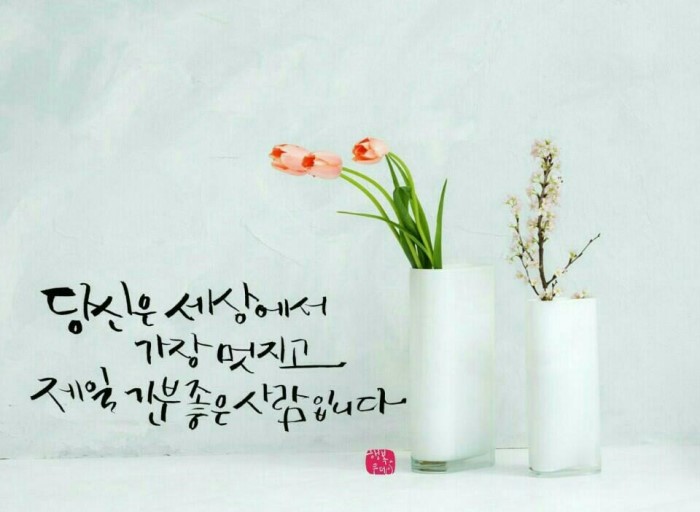 당신은 세상에서
가장 멋지고
제일 기분좋은 사람입니다